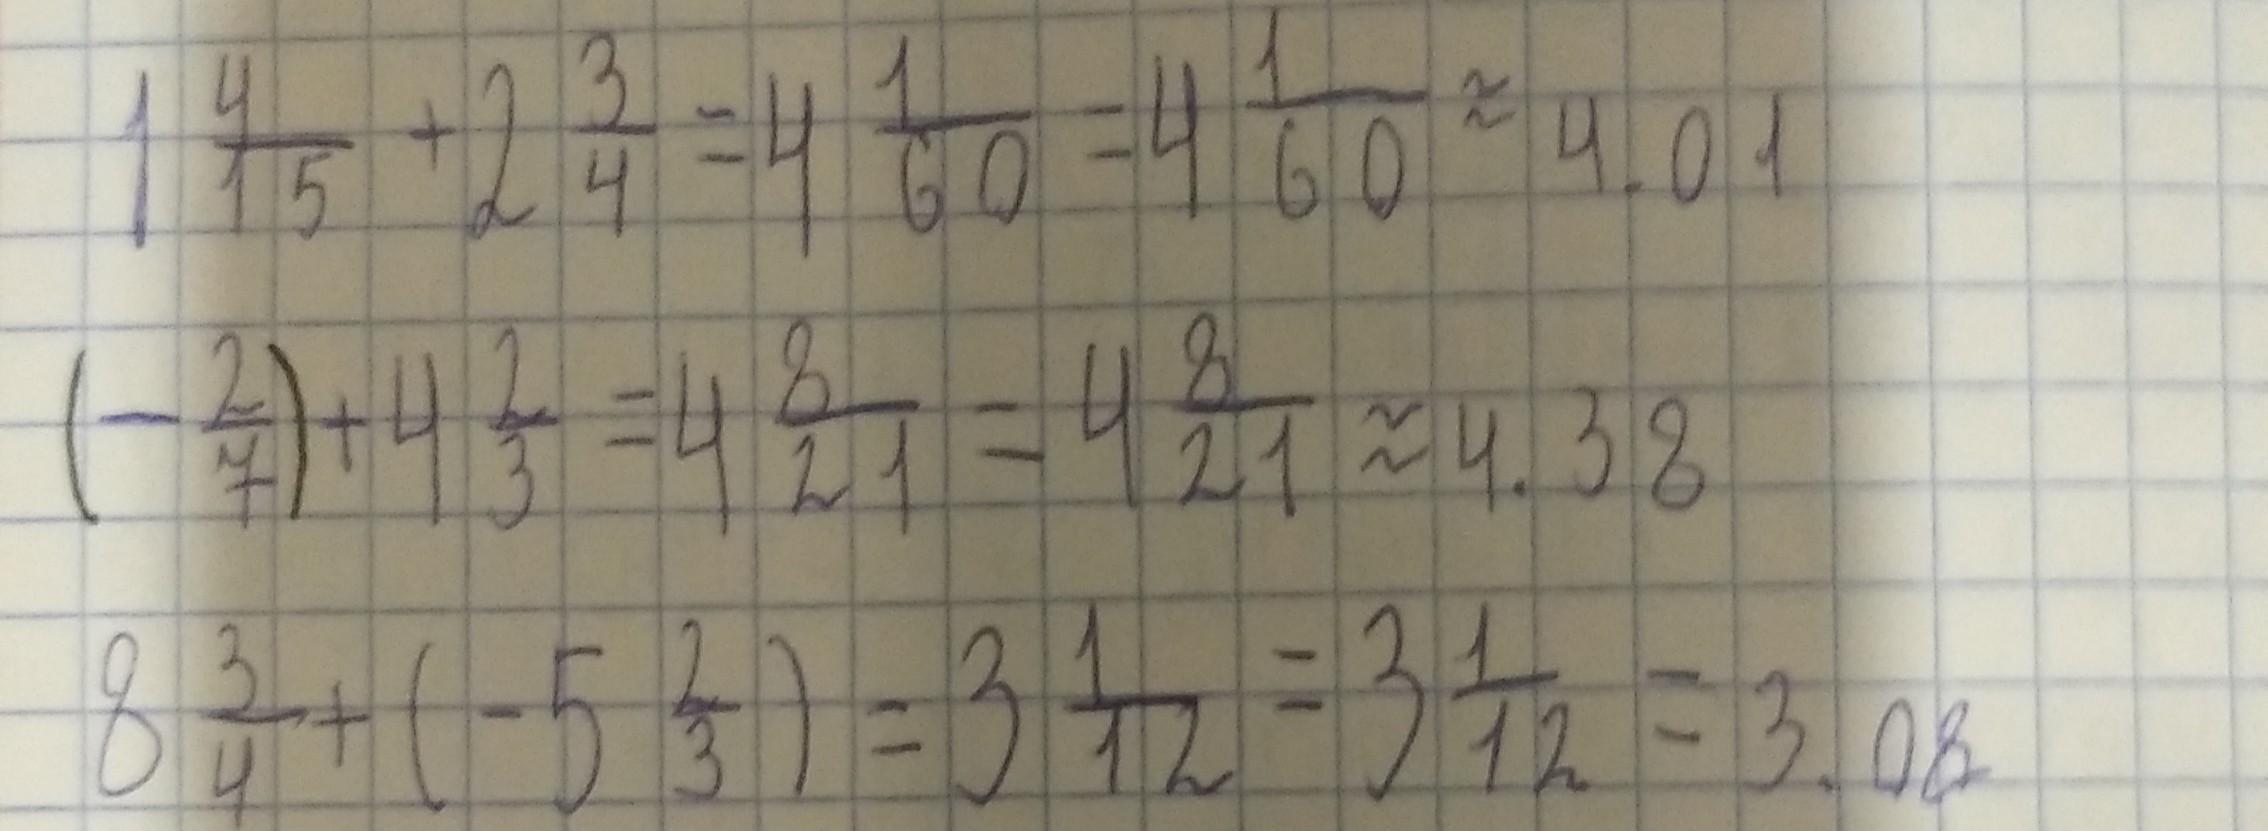 1 4/15 + 2 3/4 = 4 1/60 = 4 1/60 ≈ 4.01
(- 2/7) + 4 2/3 = 4 8/21 = 4 8/21 ≈ 4.38
8 3/4 + (-5 2/3) = 3 1/12 = 3 1/12 = 3.08